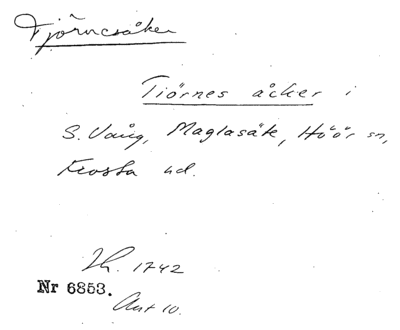 Tjörnesåker
Tiörnes åcker i
S. Vång, Maglasäte, Höör sn,
Frosta hd.
Lh. 1742
Nr 6853.
Akt 10.